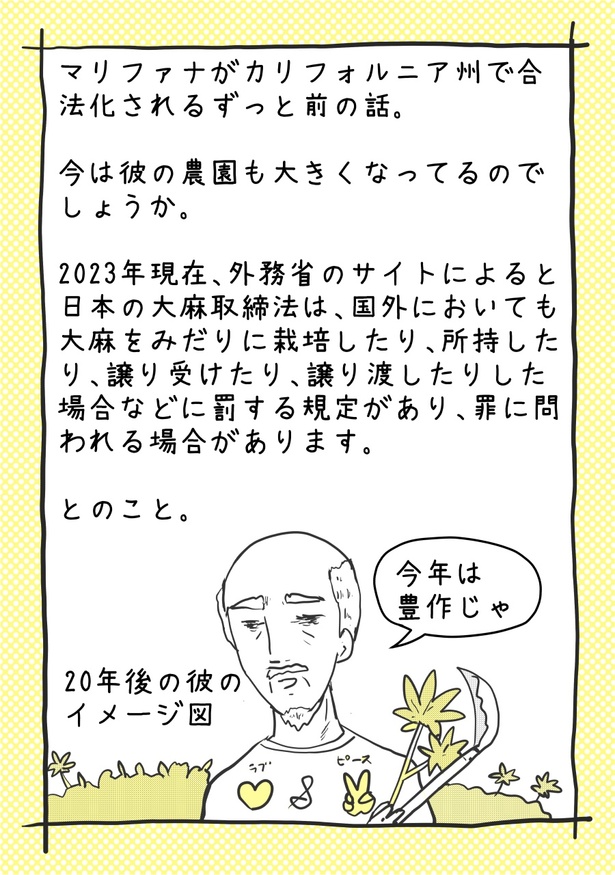 マリファナがカリフォルニア州で合
法化されるずっと前の話。
今は彼の農園も大きくなってるので
しょうか。
2023年現在、外務省のサイトによると
日本の大麻取締法は、国外においても
大麻をみだりに栽培したり、所持した
り、譲り受けたり、譲り渡したりした
場合などに罰する規定があり、罪に問
われる場合があります。
とのこと。
今年は
豊作じゃ
20年後の彼の
イメージ図
ラブ
&
ピース